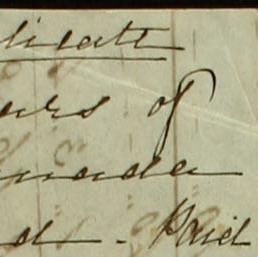 licate
ars of
nada
d - Paid